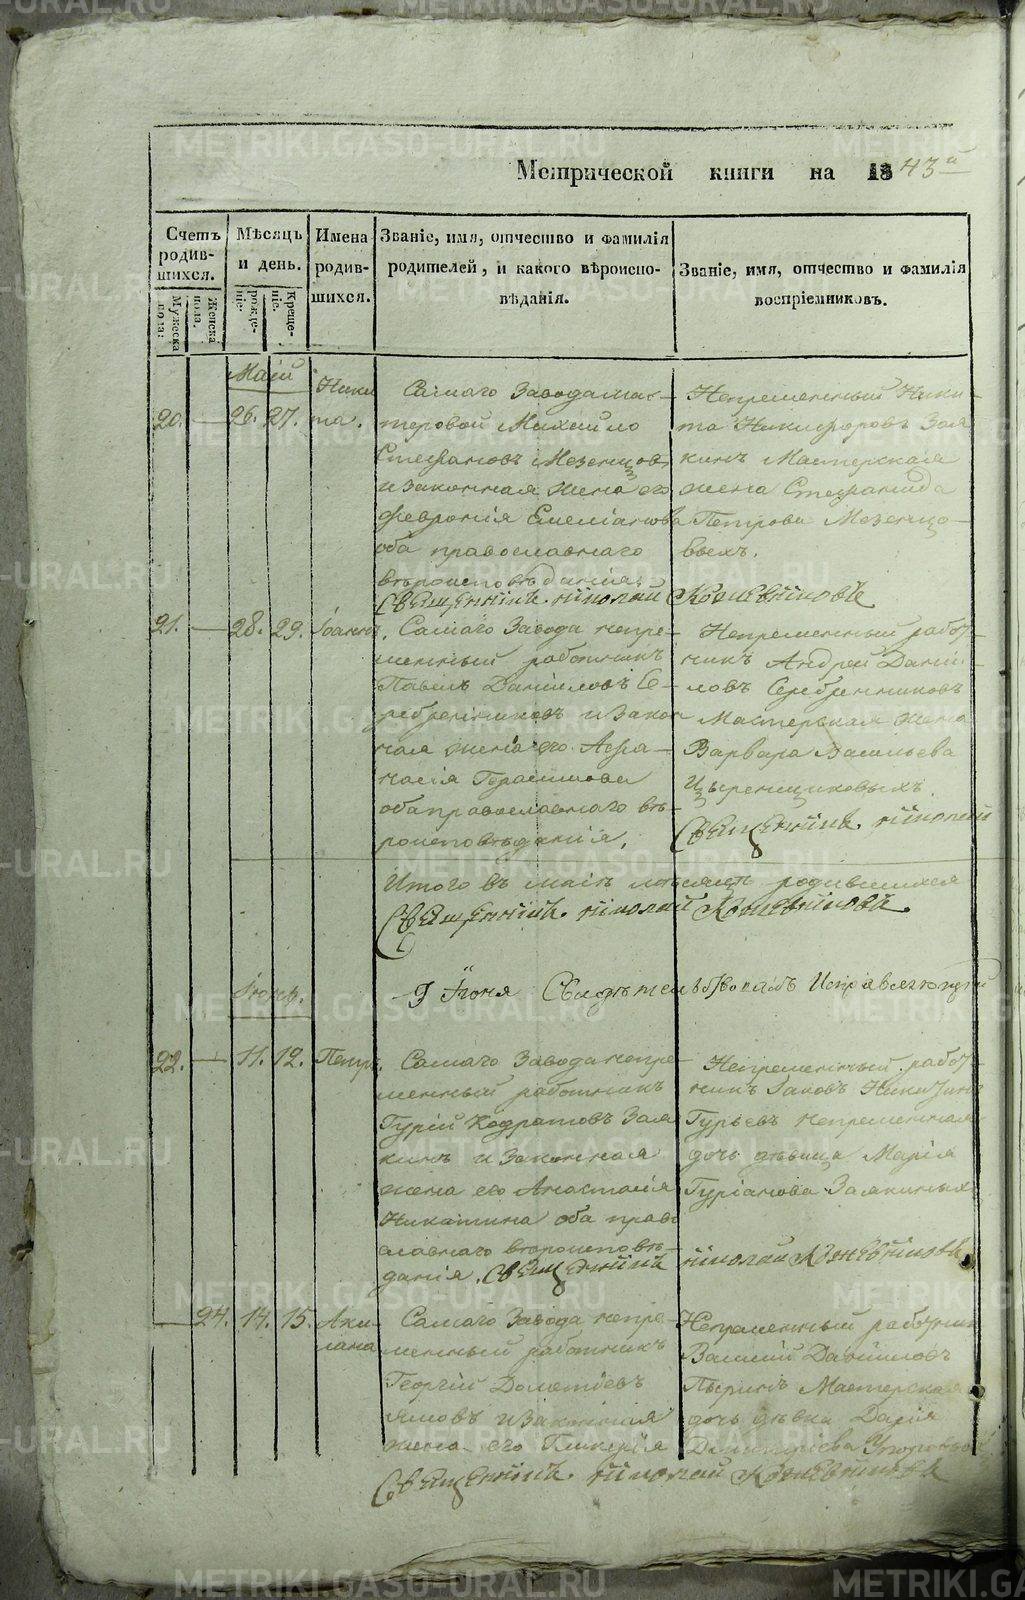 Метрической книги на 1843й
Счетъ родившихся.
Мужеска пола.
Женска пола.
Мѣсяцъ и день.
Рожденіе.
Крещеніе.
Имена родившихся.
Званіе, имя, отчество и фамилія родителей, и какого вѣроисповѣданія.
Званіе, имя, отчество и фамилія воспріемниковъ.
Маій
20. 26. 27. Ники
та.
Самаго Завода мас-
теровой Михайло
Стефановъ Мезенцовъ
и законная жена его
Феврония Емеліанова
оба православнаго
вѣроисповѣданія.
Непременный Ники-
та Никифоровъ Заля
кинъ Мастерская
жена Стефанида
Петрова Мезенцо-
выхъ.
Священникъ Николай Кожевниковъ
21. 28. 29. Іоаннъ.
Самаго Завода непре-
менный работникъ
Павелъ Даниловъ Се-
ребренниковъ и закон
ная жена его Афа-
насія Герасимова
оба православнаго вѣ-
роисповѣданія.
Непременный работ-
никъ Андрей Дани-
ловъ Серебренниковъ
Мастерская жена
Варвара Васильева
Священникъ Николай
Итого въ маіи месяцѣ родившихся
Священникъ Николай Кожевниковъ
Іюнь.
9 Іюня Свидѣтельствовалъ Исправляющій
22. 11. 12. Петръ.
Самаго Завода непре-
менный работникъ
Гурій Кодратовъ Заля
кинъ и Законная
жена его Анастасія
Никитина оба право
славнаго вѣроисповѣ-
данія. Священникъ
Непременный работ-
никъ Іаковъ Никитинъ
Гурьевъ непременная
дочь дѣвица Марія
Гуріанова Залякиныхъ
Николай Кожевниковъ
24. 14. 15. Аки-
лина
Самаго Завода непре-
менный работникъ
Георгій Дометіевъ
и Законная
жена его Гликерія
Непременный работникъ
Василій Даниловъ
Пыринъ Мастерская
дочь дѣвка Дарія
Димитріева
Священникъ Николай Кожевниковъ
METRIKI.GASO-URAL.RU